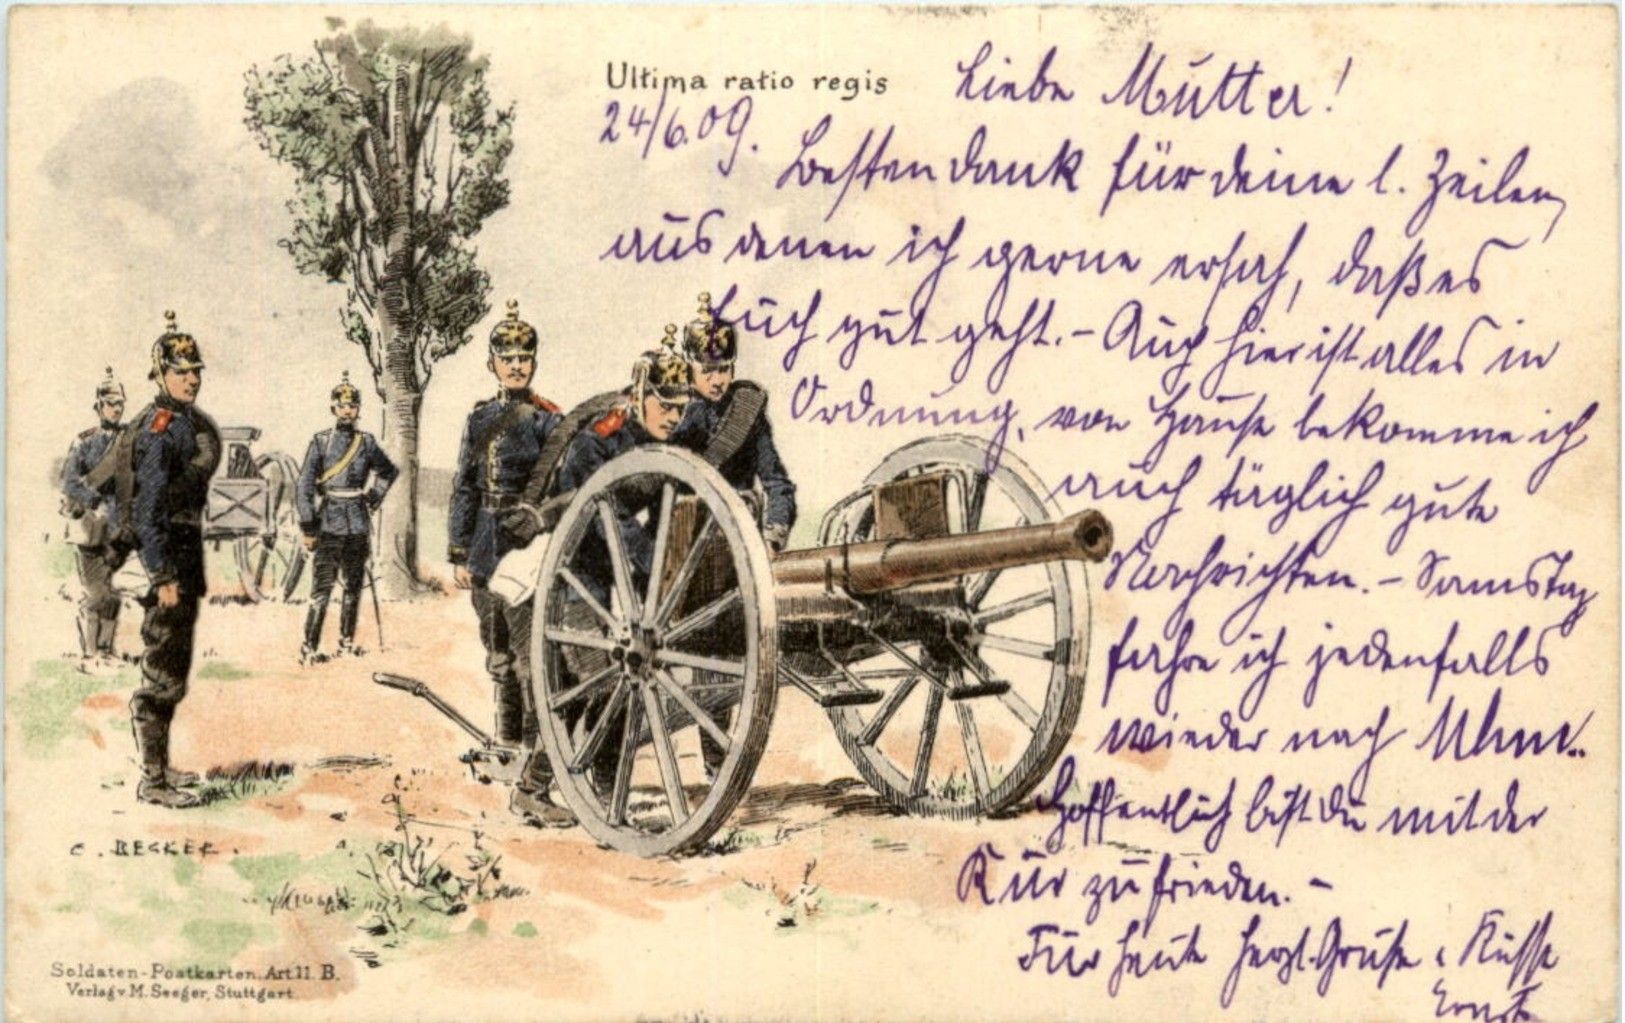 Ultima ratio regis
24/6.09.
Liebe Mutter!
Besten Dank für deine l. Zeilen,
aus denen ich gerne ersah, daß es
Euch gut geht. - Auch hier ist alles in
Ordnung, von Hause bekomme ich
auch täglich gute
Nachrichten. - Samstag
fahre ich jedenfalls
wieder nach Ulm..
Hoffentlich bist Du mit der
Kur zufrieden. -
Für heute herzl. Grüße & Küsse
Ernst
C. BECKER.
Soldaten-Postkarten. Art 11. B.
Verlag v. M. Seeger, Stuttgart